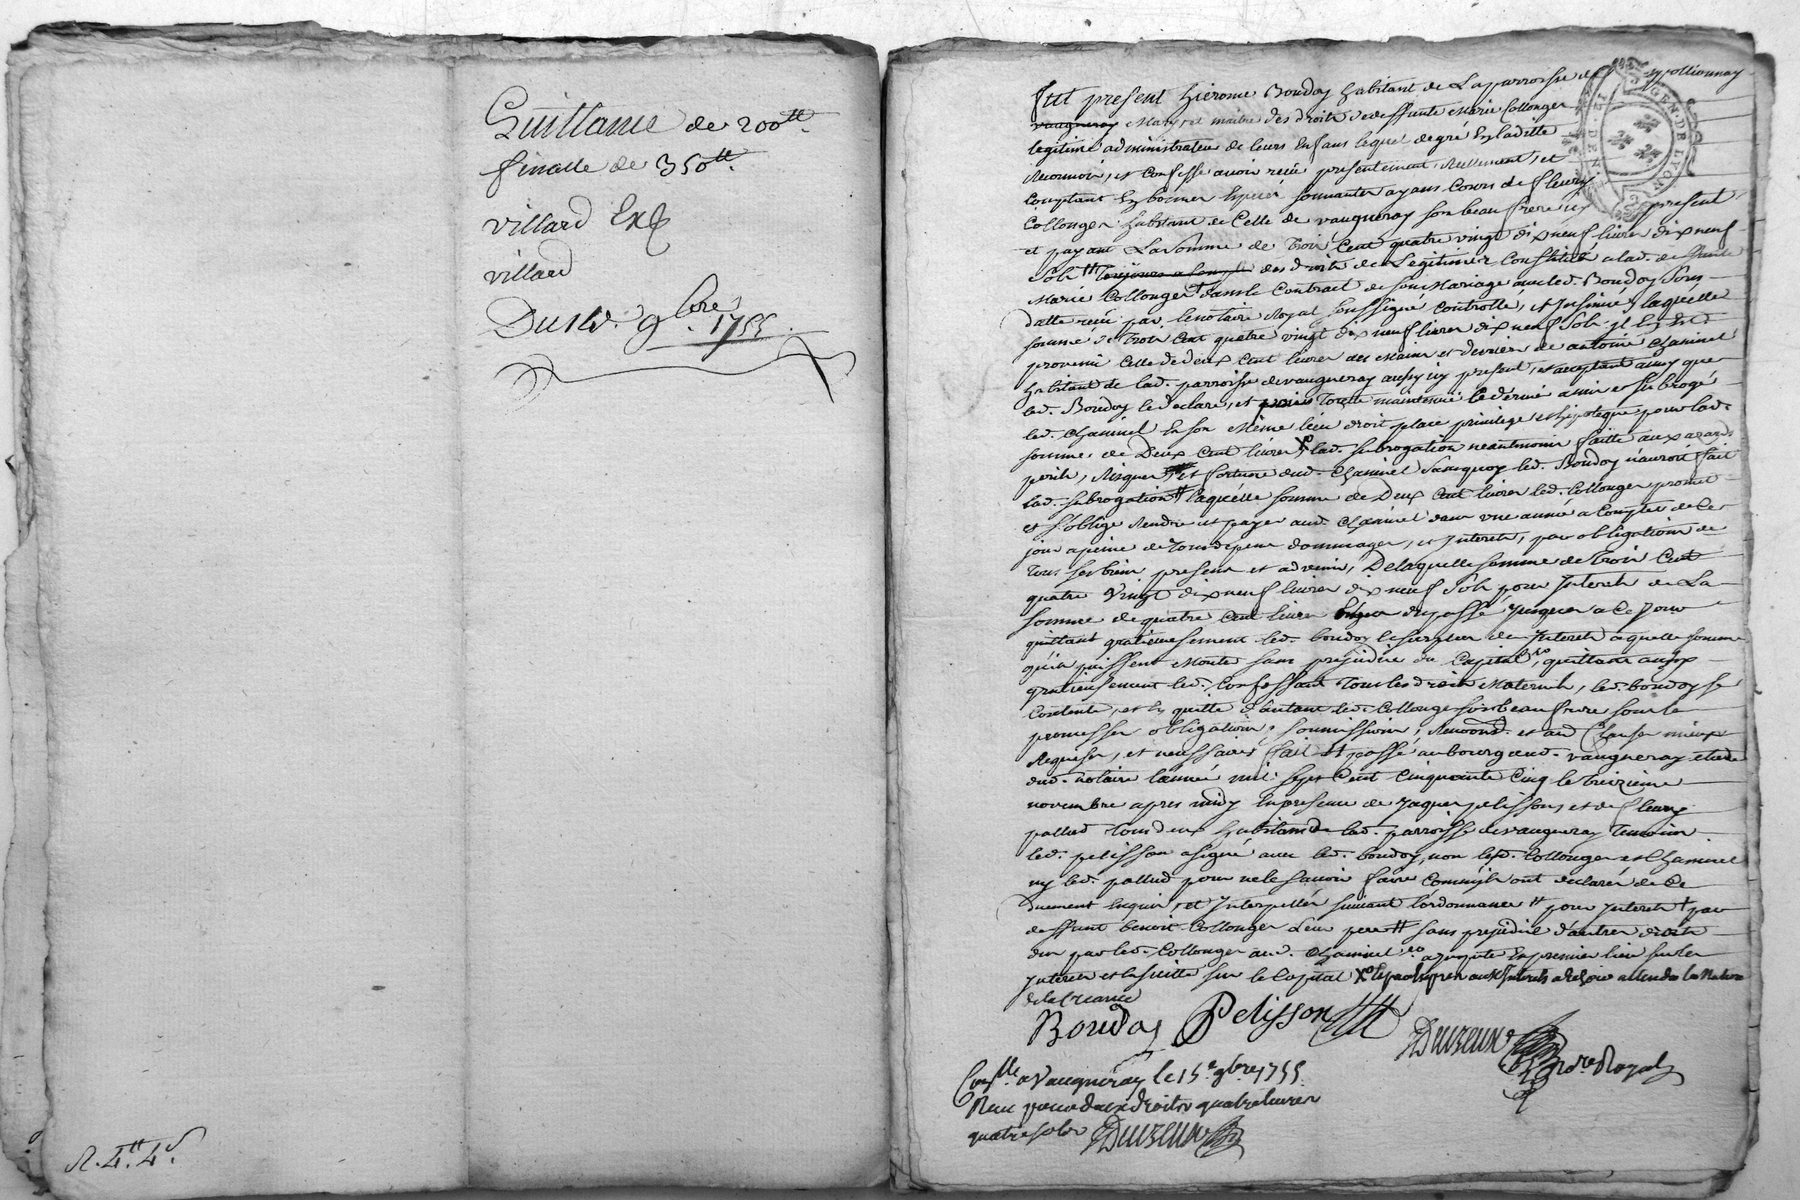 Quittance de 200tt
finalle de 350tt
villard Exp
villard
Du 9bre 1755
R. 4tt 4s
GEN. DE LYON
fut present hierome Boudoy habitant de La parroisse de pollionnay
vaugneray Mary, et maitre des droits de deffunte Marie Collonges
legitime administrateur de leurs Enfans lequel de gré En laditte
et Confesse avoir reçu presentement, reellement, et
Comptant En bonnes Especes sonnantes ayans Cours de fleury
Collonges habitant de Celle de vaugneray son beau frere icy present
et payant La somme de Trois Cent quatre vingt dix neuf livres dix neuf
sols tt des droits de Legitimes Constitués a lad. deffunte
Marie Collonges dans le Contrat de son Mariage avec led. Boudoy sous
datte reçu par le notaire Royal soussigné Controllé, et Insinué, laquelle
somme de Trois Cent quatre vingt dix neuf livres dix neuf sols jl En Est
provenu Celle de deux Cent livres des Mains et deniers de antoine Chaminel
habitant de lad. parroisse de vaugneray aussy icy present, et acceptant ainsy que
led. Boudoy le declare, et Toute maintenue led. a mis et subrogé
led. Chaminel En son Même lieu droit place privilege et hipoteque pour lad.
somme de Deux Cent livres X lad. subrogation neantmoins faitte aux azards
perils, Risques et fortune dud. Chaminel sans quoy led. Boudoy n'auroit fait
lad. subrogation tt laquelle somme de Deux Cent livres led. Collonges promet
et s'oblige Rendre et payer aud. Chaminel dans une année a Compter de Ce
jour a peine de Tous depens dommages, et Interets, par obligation de
Tous ses biens presens et advenir, De laquelle somme de Trois Cent
quatre vingt dix neuf livres dix neuf sols pour Interets de La
somme de quatre Cent livres du passé Jusques a Ce Jour
quittant gratieusement led. boudoy le surplus des Interets a quelle somme
qu'ils puissent Monter sans prejudice du Capital, quittans aussy
gratieusement led. Confessant Tous les droits Maternels, led. boudoy se
Contente, et En quitte d'autant led. Collonges son beau frere sous les
promesses obligations, soumissions, et aud Clauses mieux
Requises, et necessaires fait et passé au bourg dud. vaugneray etude
dud. notaire l'année mil sept Cent Cinquante Cinq le treizieme
novembre apres midy En presence de Jaques pelisson, et de fleury
pallud Tous deux habitans de lad. parroisse de vaugneray Temoins
led. pelisson a signé avec led. boudoy, non lesd. Collonges et Chaminel
ny led. pallud pour ne le sçavoir faire Comme ils ont declarés de Ce
duement Enquis, et Interpellés suivant l'ordonnance tt pour Interets + par
deffunt benoit Collonges Leur pere tt sans prejudice d'autres droits
dus par led. Collonges aud. Chaminel En premier lieu sur les
Interets et En suitte sur le Capital attendu la Nature
de la Creance
Boudoy Pelisson
Duzeux
Nore Royal
Conlle a Vaugneray le 15e 9bre 1755
Reçu pour deux droits quatre livres
quatre sols Duzeux